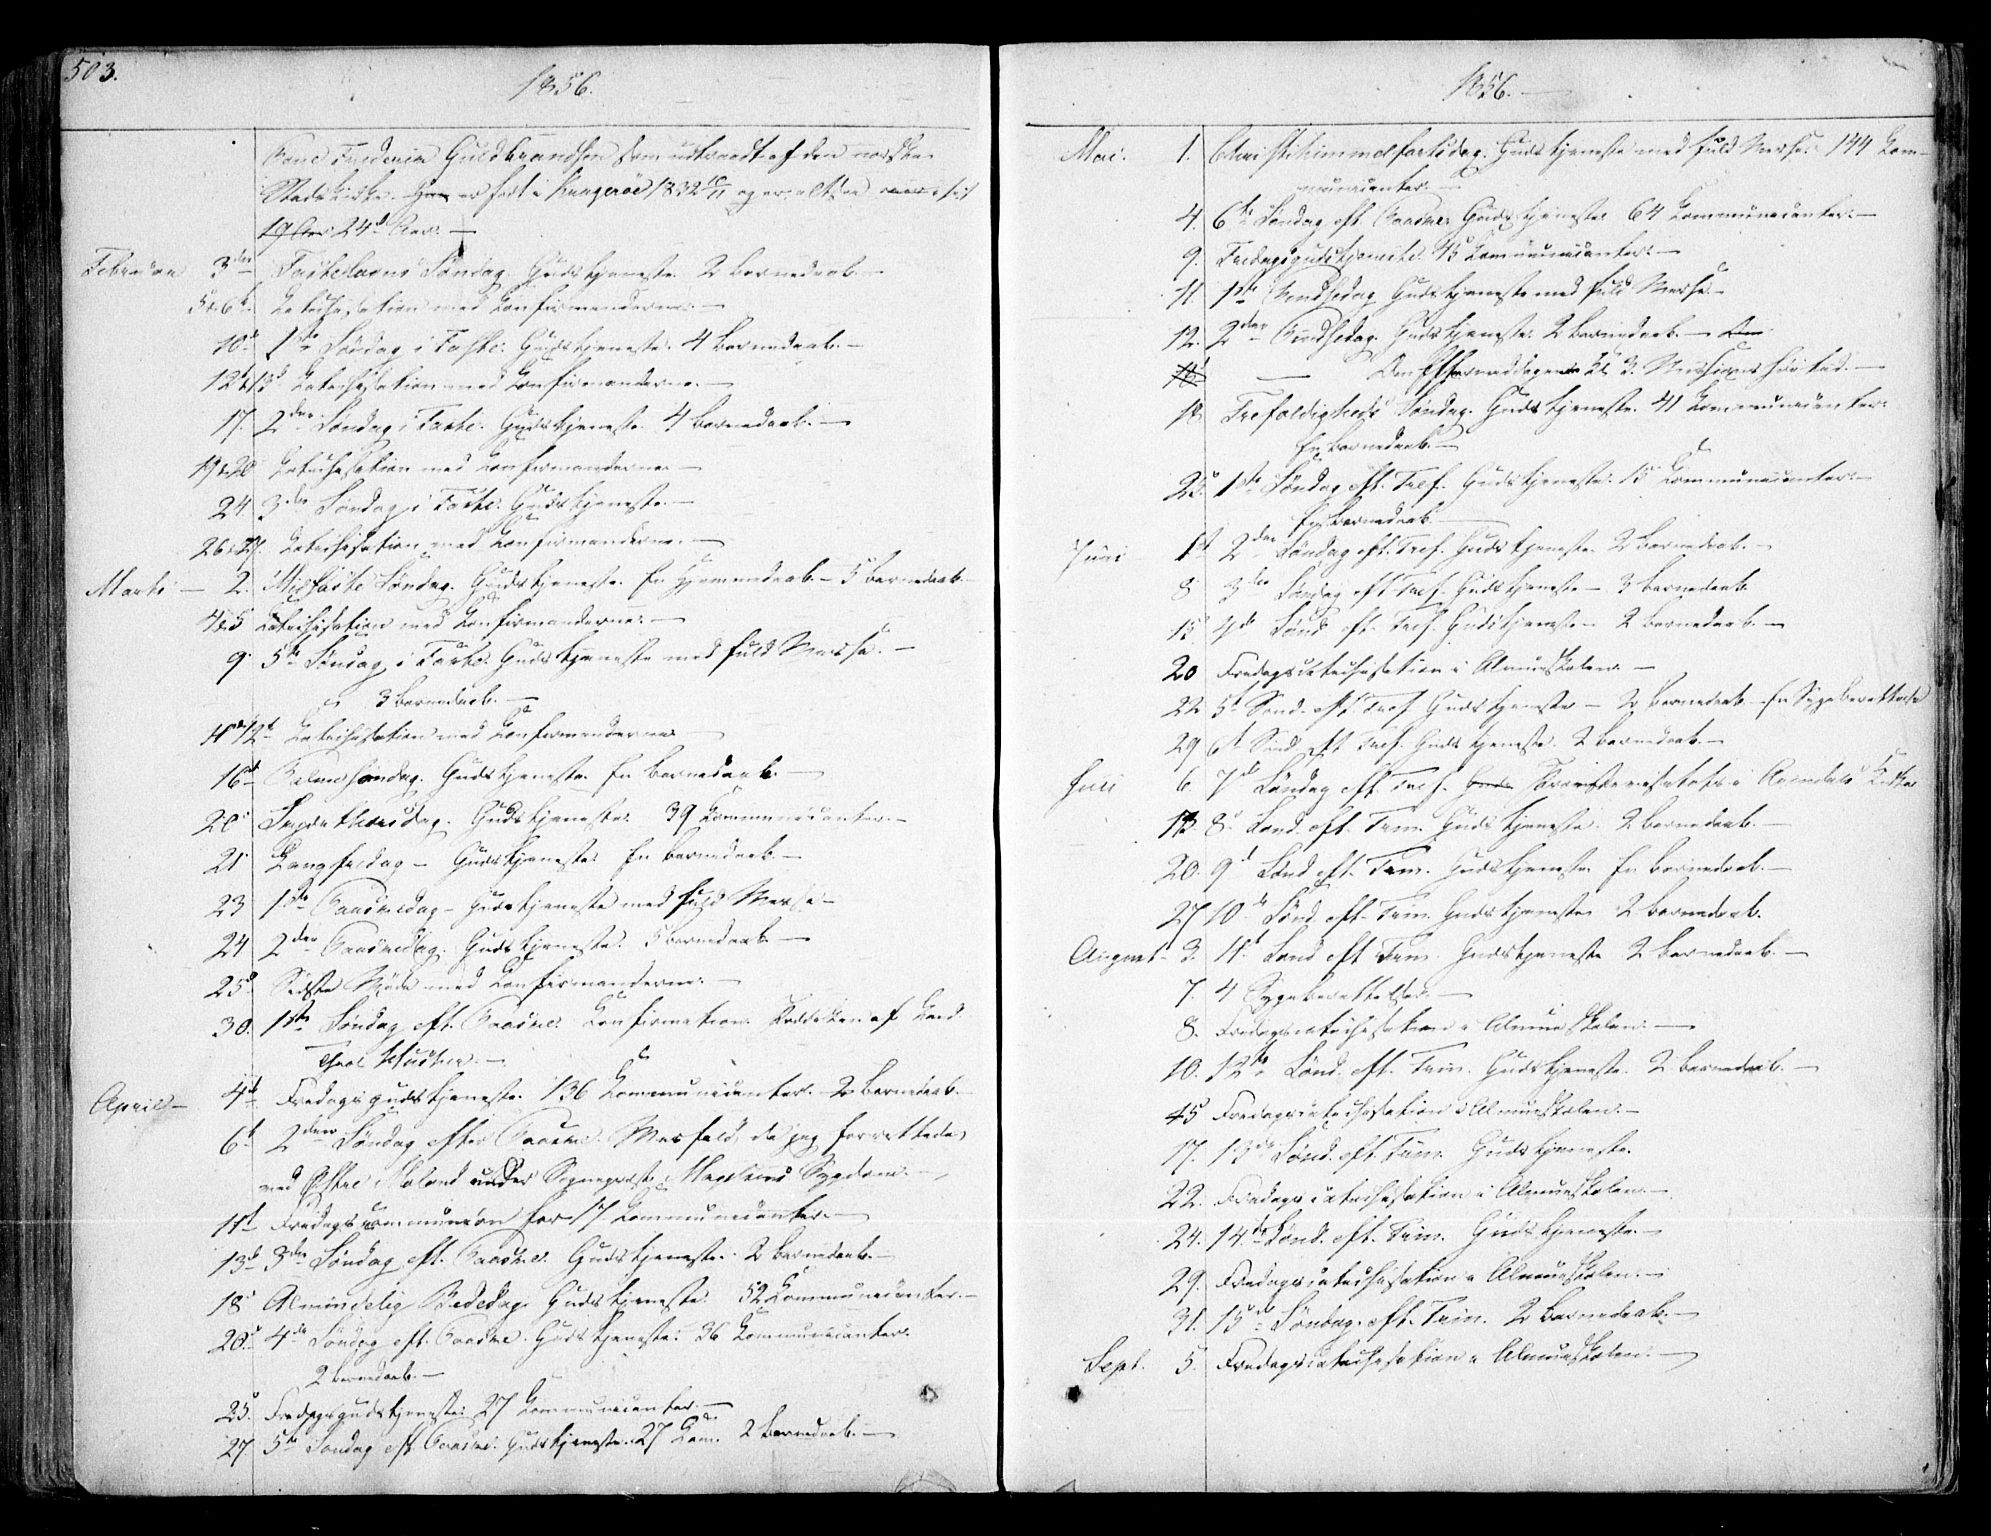 503.
1856.
Frederik Guldbrandsen som udtraadt af den norske
Statskirke. Han er født i Kragerøe 1832 10/11 og er altsaa i sit
19 Aar 24d Aar. —
Februar 3die Fastelavns Søndag. Gudstjeneste. 2 Barnedaab. —
5 & 6t Katechisation med Konfirmanderne. —
10d 1ste Søndag i Faste. Gudstjeneste. 4 Barnedaab. —
12 & 13d Katechisation med Konfirmanderne. —
17. 2den Søndag i Faste. Gudstjeneste. 4 Barnedaab. —
19 & 20 Katechisation med Konfirmanderne. —
24 3die Søndag i Faste. Gudstjeneste. —
26 & 27. Katechisation med Konfirmanderne. —
Marts — 2. Midfaste Søndag. Gudstjeneste. En Hjemmedaab. — 5 Barnedaab.
4 & 5 Katechisation med Konfirmanderne. —
9. 5te Søndag i Faste. Gudstjeneste med fuld Messe. —
3 Barnedaab. —
11 & 12t Katechisation med Konfirmanderne —
16d Palmesøndag. Gudstjeneste. En Barnedaab. —
20. Skjærthorsdag. Gudstjeneste. 39 Kommunicanter. —
21 Langfredag — Gudstjeneste. En Barnedaab. —
23 1ste Paaskedag — Gudstjeneste med fuld Messe. —
24 2den Paaskedag. Gudstjeneste. 5 Barnedaab. —
25d Sidste Møde med Konfirmanderne. —
30. 1ste Søndag eft. Paaske. Konfirmation. af Kand.
Theol. —
April — 4d Fredagsgudstjeneste. 136 Kommunicanter. 2 Barnedaab. —
6t 2den Søndag efter Paaske. Messefald, da jeg forrettede
ved Østre Moland under Sognepræst Sygdom. —
11t Fredagscommunion for 17 Kommunicanter. —
13d 3die Søndag eft. Paaske. Gudstjeneste. 2 Barnedaab. —
18 Almindelig Bededag. Gudstjeneste. 52 Kommunicanter. —
20d 4de Søndag eft. Paaske. Gudstjeneste. 36 Kommunicanter.
2 Barnedaab. —
25. Fredagsgudstjeneste. 27 Kommunicanter. —
27 5te Søndag eft. Paaske. Gudstjeneste. 27 Kom. 2 Barnedaab. —
1856. —
Mai. 1. Christi himmelfartsdag. Gudstjeneste med fuld Messe. 144 Kom-
municanter. —
4. 6te Søndag eft. Paaske. Gudstjeneste. 64 Kommunicanter. —
9. Fredagsgudstjeneste. 45 Kommunicanter. —
11. 1ste Pindsedag Gudstjeneste med fuld Messe. —
12. 2den Pindsedag. Gudstjeneste. 2 Barnedaab. —
— Om Eftermiddagen Kl. 3. Missions høitid. —
18. Trefoldigheds Søndag. Gudstjeneste. 41 Kommunicanter.
En Barnedaab. —
25. 1ste Søndag eft. Tref. Gudstjeneste. 15 Kommunicanter. —
En Barnedaab. —
Juni 1st 2den Søndag eft. Tref. Gudstjeneste. 2 Barnedaab. —
8 3die Søndag eft. Tref. Gudstjeneste — 3 Barnedaab.
15 4de Sønd. eft. Tref. Gudstjeneste — 2 Barnedaab. —
20 Fredagscatechisation i Almueskolen. —
22 5t Sønd. eft. Tref. Gudstjeneste — 2 Barnedaab. En Sygeberettelse
29 6t Sønd. eft. Tref. Gudstjeneste. 2 Barnedaab. —
Juli 6. 7de Søndag eft. Tref. Guds i Arendals Kirke
13. 8. Sønd. eft. Trin. Gudstjeneste. 2 Barnedaab. —
20. 9d Sønd. eft. Trin. Gudstjeneste. En Barnedaab. —
27 10de Sønd. eft. Trin. Gudstjeneste 2 Barnedaab.
August — 3. 11t Sønd. eft. Trin. Gudstjeneste 2 Barnedaab. —
7. 4 Sygeberettelser. —
8. Fredagscatechisation i Almueskolen. —
10. 12te Sønd. eft. Trin. Gudstjeneste. 2 Barnedaab. —
15 Fredagscatechisation i Almueskolen. —
17. 13de Sønd. eft. Trin. Gudstjeneste.
22. Fredagscatechisation i Almueskolen. —
24. 14de Sønd. eft. Trin. Gudstjeneste. —
29. Fredagscatechisation i Almueskolen. —
31. 15de Søndag. eft. Trin. 2 Barnedaab. —
Sept. 5. Fredagscatechisation i Almueskolen. —